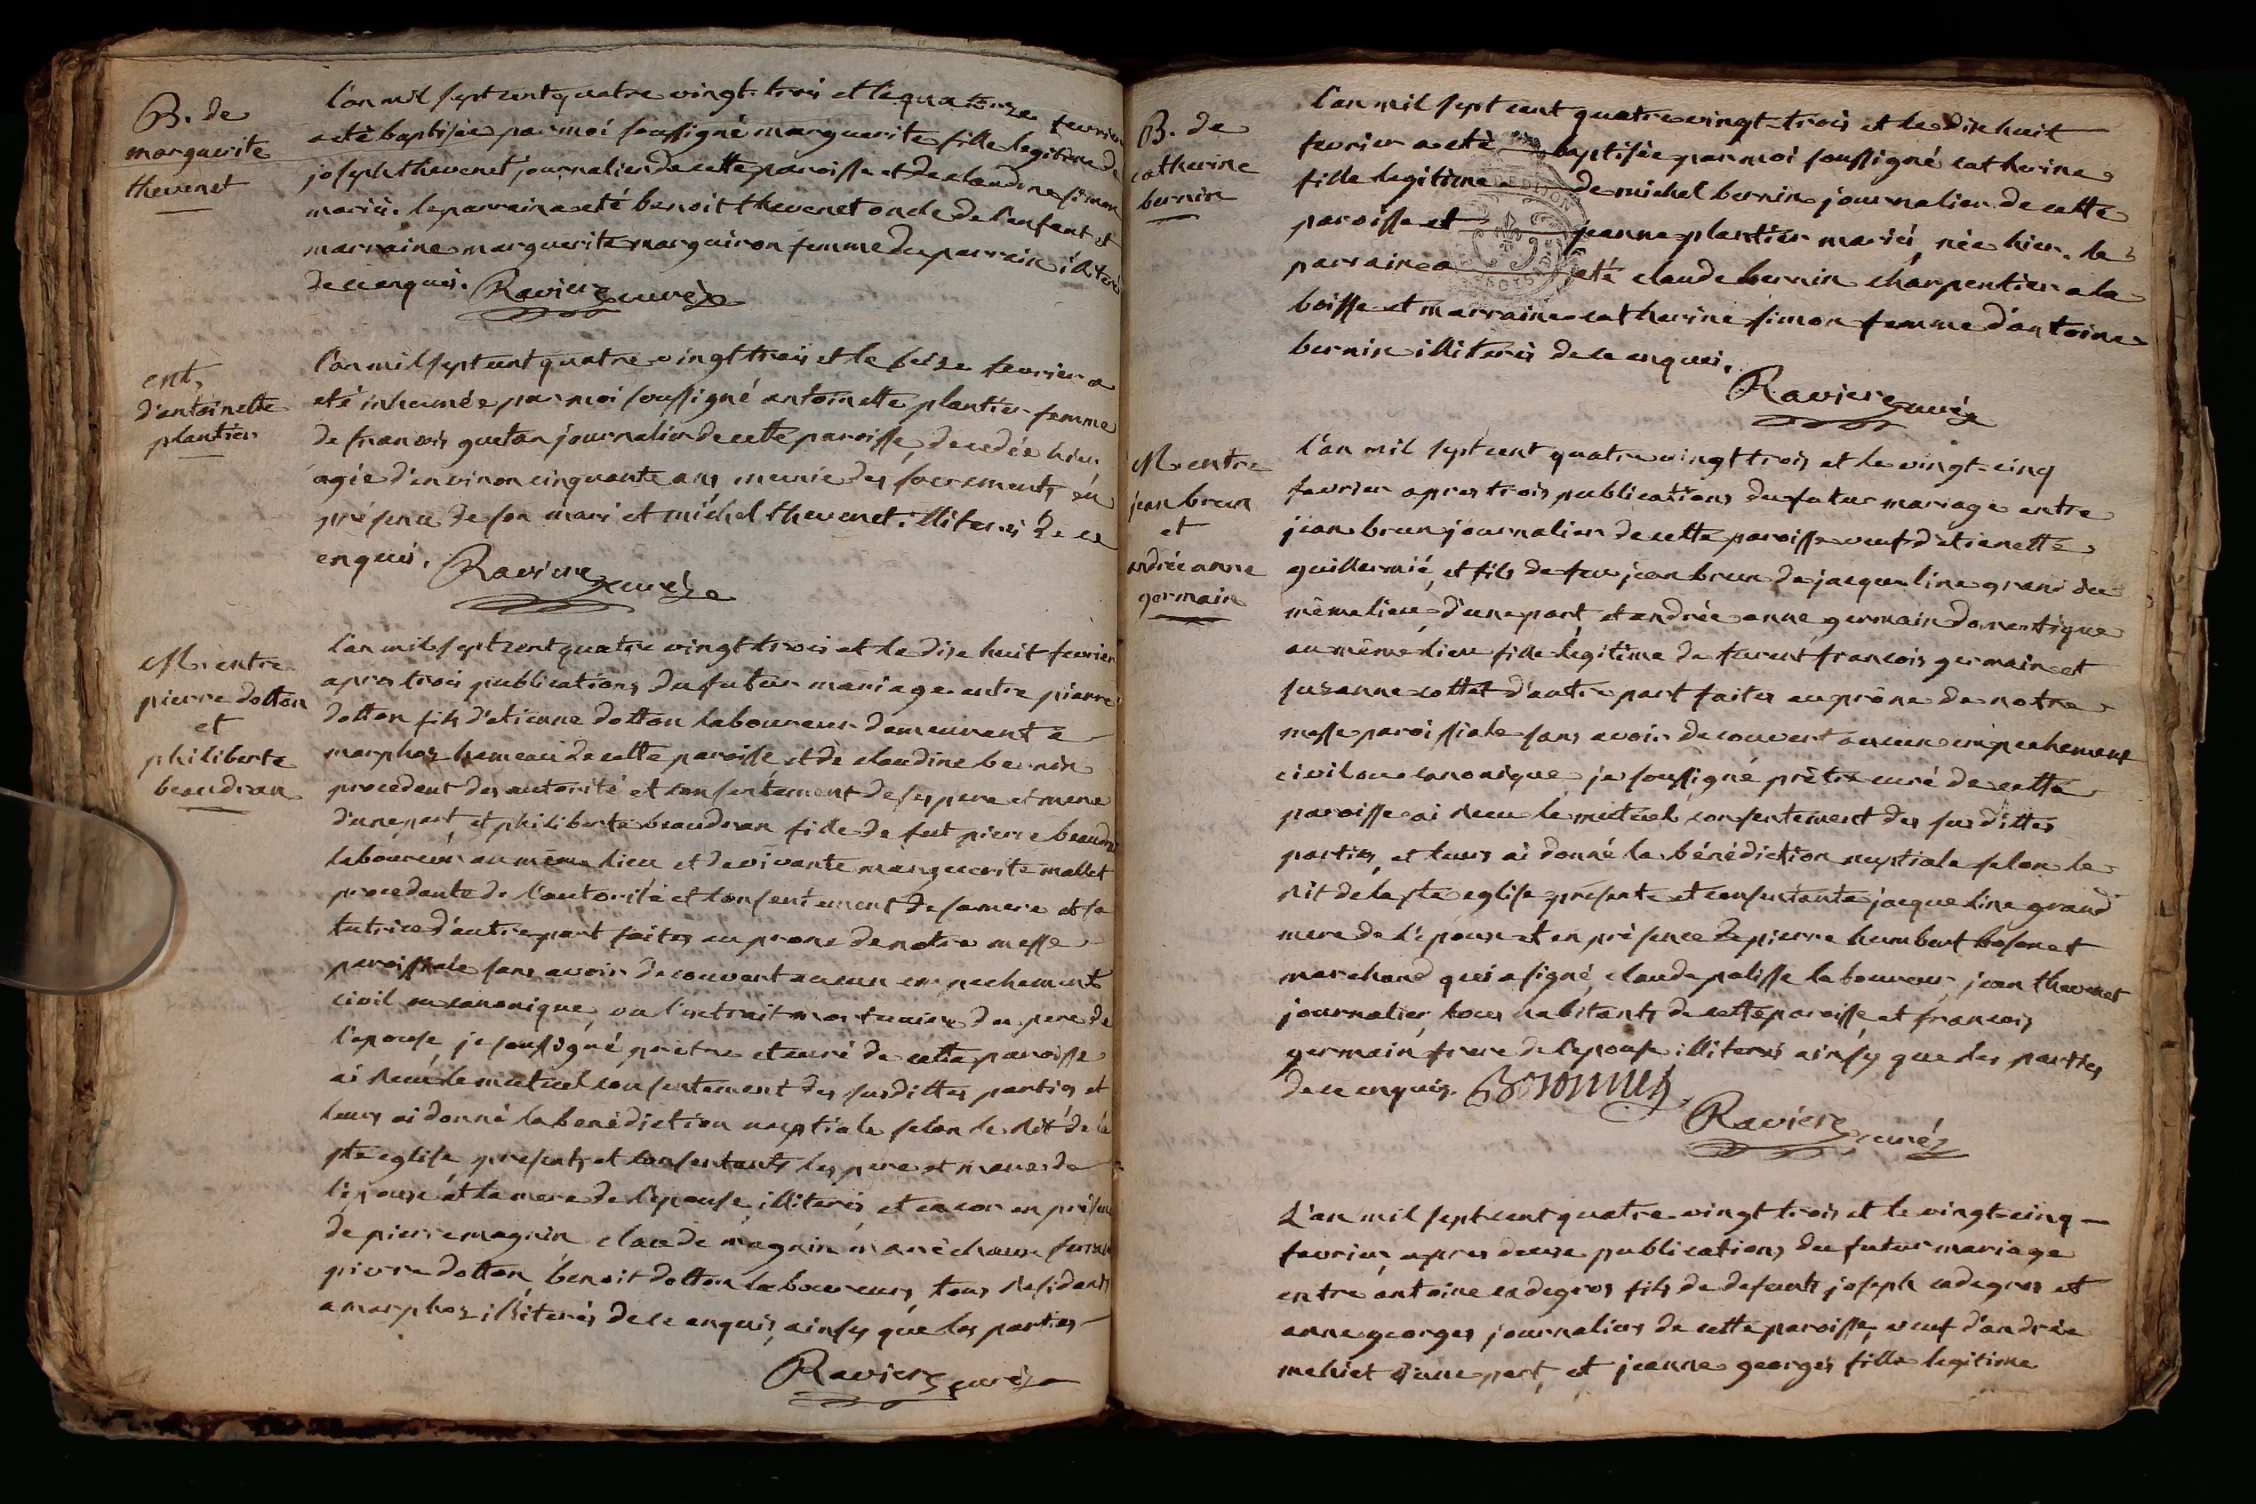 B. de
marguerite
thevenet
l'an mil sept cent quatre vingt trois et le quatorze fevrier
a eté baptisée par moi soussigné marguerite fille legitime de
joseph thevenet journalier de cette paroisse et de claudine simon
mariés. le parrain a eté benoit thevenet oncle de l'enfant et
marraine marguerite marguiron femme du parrain illiterés
de ce enquis. Raviere curé
ent.
d'antoinette
plantier
l'an mil sept cent quatre vingt trois et le seize fevrier a
eté inhumée par moi soussigné antoinette plantier femme
de francois guetan journalier de cette paroisse, decedée hier
agée d'environ cinquante ans munie des sacrements en
présence de son mari et michel thevenet illiterés de ce
enquis. Raviere curé
M. entre
pierre dotton
et
philiberte
beaudran
l'an mil sept cent quatre vingt trois et le dix huit fevrier
apres trois publications du futur mariage entre pierre
dotton fils d'etienne dotton laboureur demeurant a
marphoz hameau de cette paroisse et de claudine bernin
procedant des autorité et consentement de ses pere et mere
d'une part, et philiberte beaudran fille de feu pierre beaudran
laboureur au même lieu et de vivante marguerite mallet
procedante de l'autorité et consentement de sa mere et sa
tutrice d'autre part faites au prone de notre messe
paroissiale sans avoir decouvert aucun empechement
civil ou canonique, vu l'extrait mortuaire du pere de
l'epouse, je soussigné, pretre et curé de cette paroisse
ai recu le mutuel consentement des susdittes parties et
leurs ai donné la benediction nuptiale selon le rit de la
ste eglise, presents et consentants les pere et mere de
l'epoux et la mere de l'epouse, illiterés, et encor en présence
de pierre magnin claude magnin maréchaux ferrants
pierre dotton, benoit dotton laboureurs, tous residants
a marphoz illiterés de ce enquis, ainsy que les parties
Raviere curé
B. de
catherine
bernin
l'an mil sept cent quatre vingt-trois et le dix huit
fevrier a eté baptisée par moi soussigné catherine
fille legitime de michel bernin journalier de cette
paroisse et jeanne plantier mariés, née hier. le
parrain a eté claude bernin charpentier a la
boisse et marraine catherine simon femme d'antoine
bernin illiterés de ce enquis.
Raviere curé
M. entre
jean brun
et
andrée anne
germain
l'an mil sept cent quatre vingt trois et le vingt-cinq
fevrier apres trois publications du futur mariage entre
jean brun journalier de cette paroisse veuf d'etienette
guillermié, et fils de feu jean brun de jacqueline grand du
même lieu, d'une part, et andrée anne germain domestique
au même lieu fille legitime de furent francois germain et
suzanne cottet d'autre part faites au prône de notre
messe paroissiale sans avoir decouvert aucun empechement
civil ou canonique, je soussigné prêtre curé de cette
paroisse ai recu le mutuel consentement des susdittes
parties, et leurs ai donné la bénédiction nuptiale selon le
rit de la ste eglise présente et consentante jacqueline grand
mere de l'epoux et en présence de pierre humbert bosonet
marchand qui a signé, claude palisse laboureur, jean thevenet
journalier, tous habitants de cette paroisse, et francois
germain frere de l'epouse illiterés ainsy que les parties
de ce enquis. Bosonnet
Raviere curé
L'an mil sept cent quatre vingt trois et le vingt-cinq
fevrier, apres deux publications du futur mariage
entre antoine cadegros fils de defunts joseph cadegros et
anne georges journalier de cette paroisse, veuf d'andrée
mehiet d'une part, et jeanne georges fille legitime